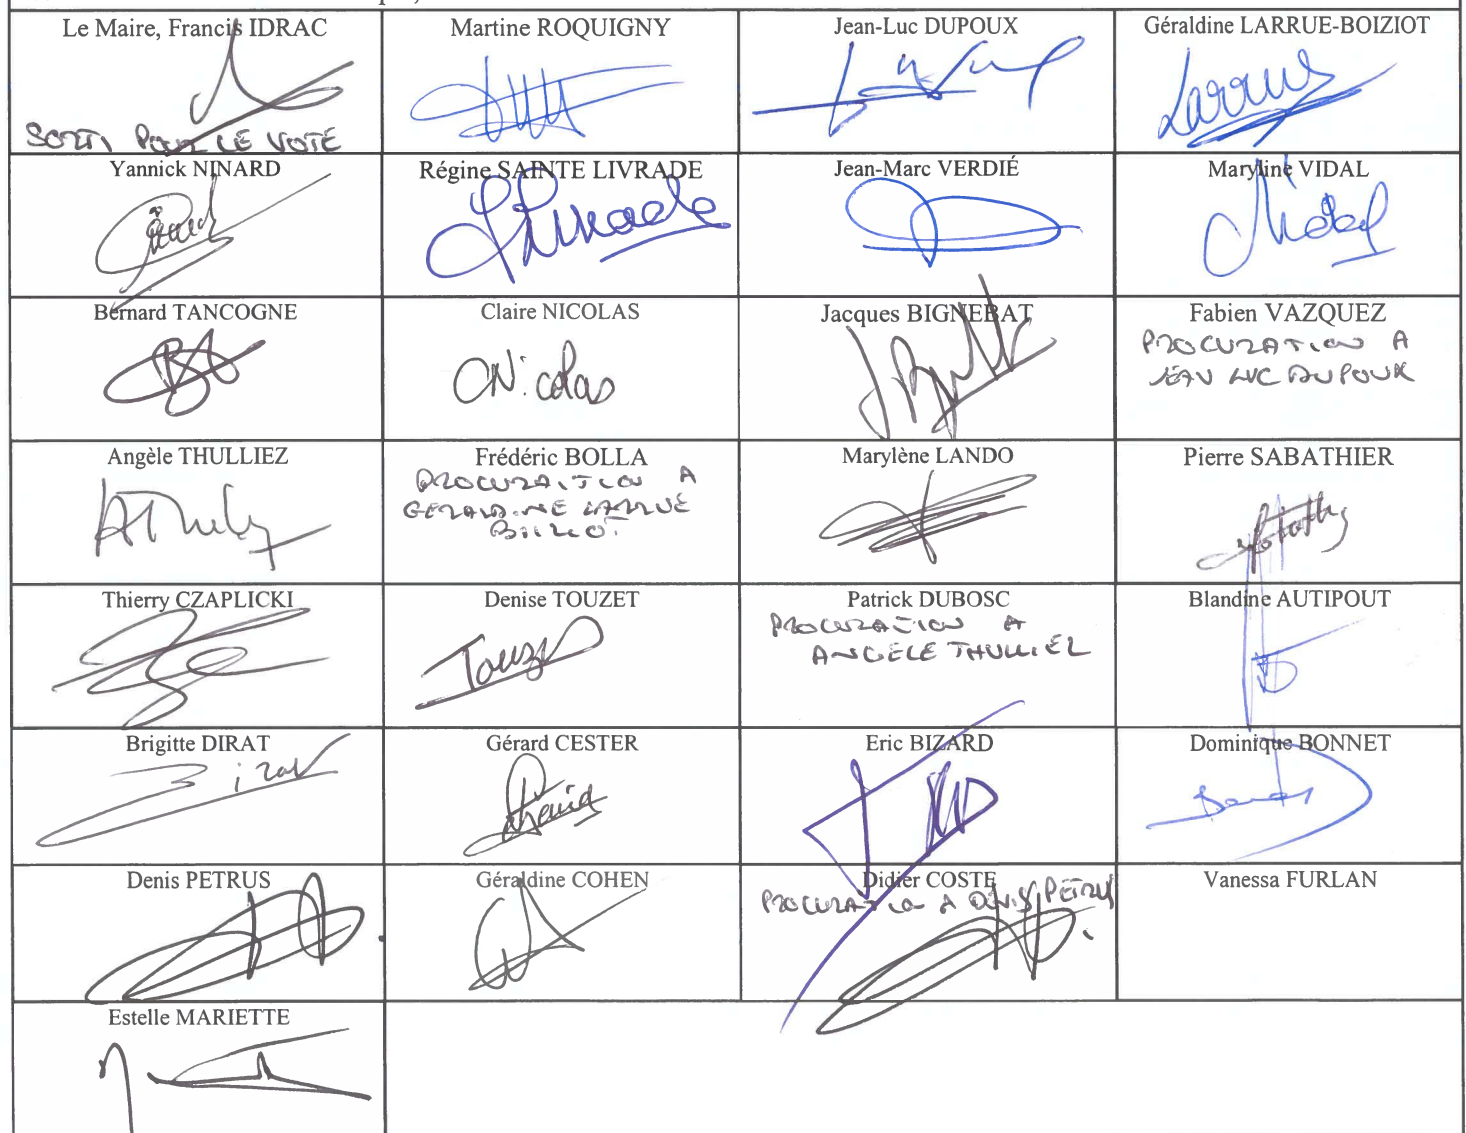 Le Maire, Francis IDRAC
SORTI POUR LE VOTE
Martine ROQUIGNY
Jean-Luc DUPOUX
Géraldine LARRUE-BOIZIOT
Larrue
Yannick NINARD
Régine SAINTE LIVRADE
Jean-Marc VERDIÉ
Maryline VIDAL
Vidal
Bernard TANCOGNE
Claire NICOLAS
CNicolas
Jacques BIGNEBAT
Fabien VAZQUEZ
PROCURATION A
JEAN LUC DUPOUX
Angèle THULLIEZ
Frédéric BOLLA
PROCURATION A
GERALDINE LARRUE
Marylène LANDO
Pierre SABATHIER
Thierry CZAPLICKI
Denise TOUZET
Patrick DUBOSC
PROCURATION A
ANGELE THULLIEZ
Blandine AUTIPOUT
Brigitte DIRAT
Gérard CESTER
Eric BIZARD
Dominique BONNET
Denis PETRUS
Géraldine COHEN
Didier COSTE
PROCURATION A DENIS PETRUS
Vanessa FURLAN
Estelle MARIETTE